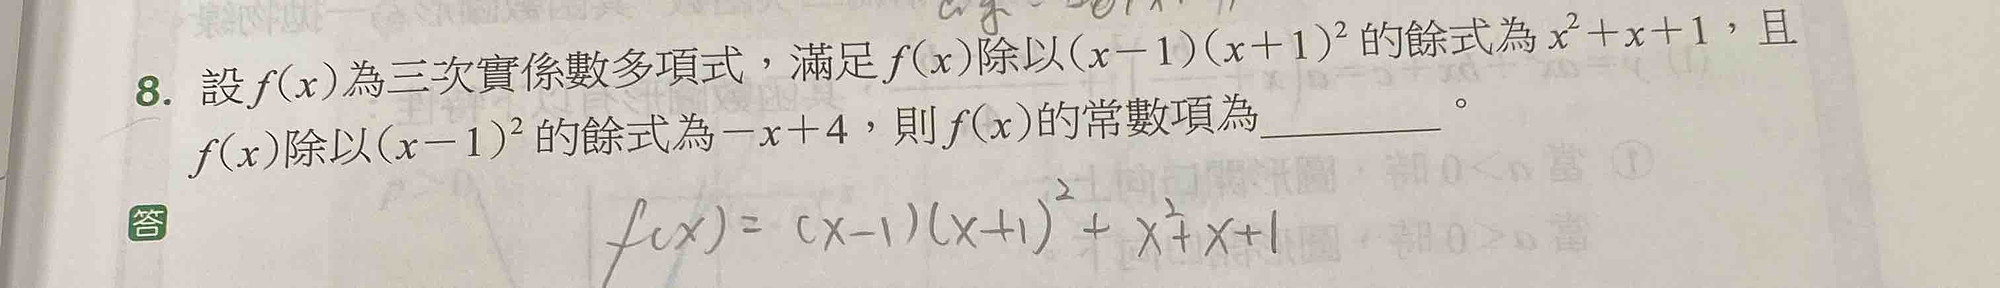 8. 設f(x)為三次實係數多項式，滿足f(x)除以(x－1)(x＋1)²的餘式為x²＋x＋1，且
f(x)除以(x－1)²的餘式為－x＋4，則f(x)的常數項為________。
答
f(x) = (x-1)(x+1)² + x²+x+1